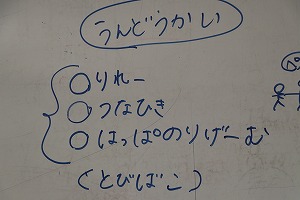 うんどうかい
○りれー
○つなひき
○はっぱのりげーむ
(とびばこ)